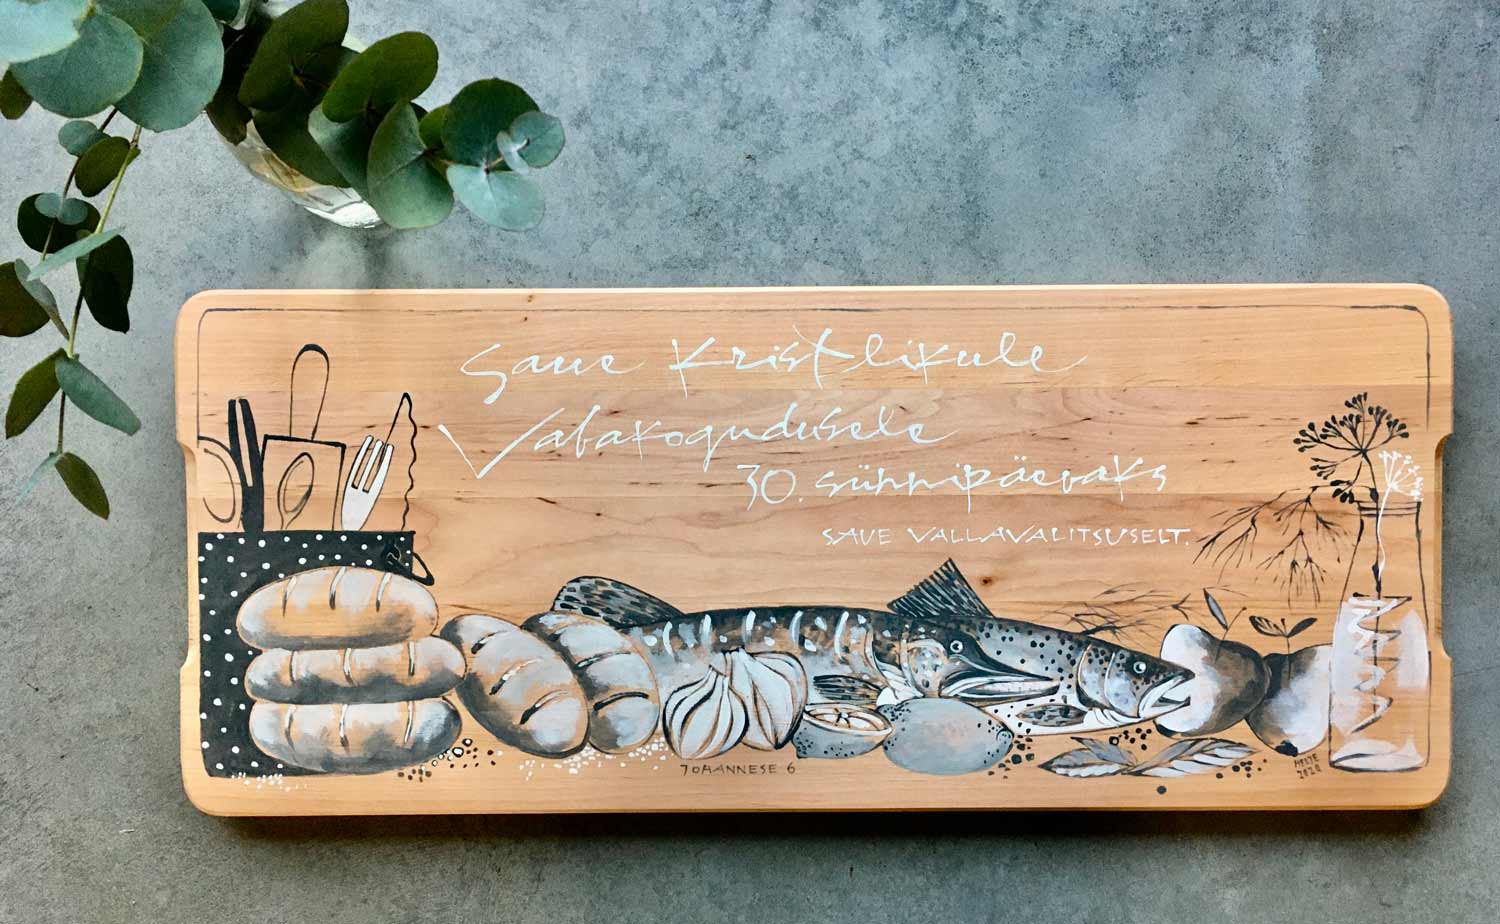 Saue Kristlikule
Vabakogudusele
30. sünnipäevaks
SAUE VALLAVALITSUSELT.
JOHANNESE 6
2020